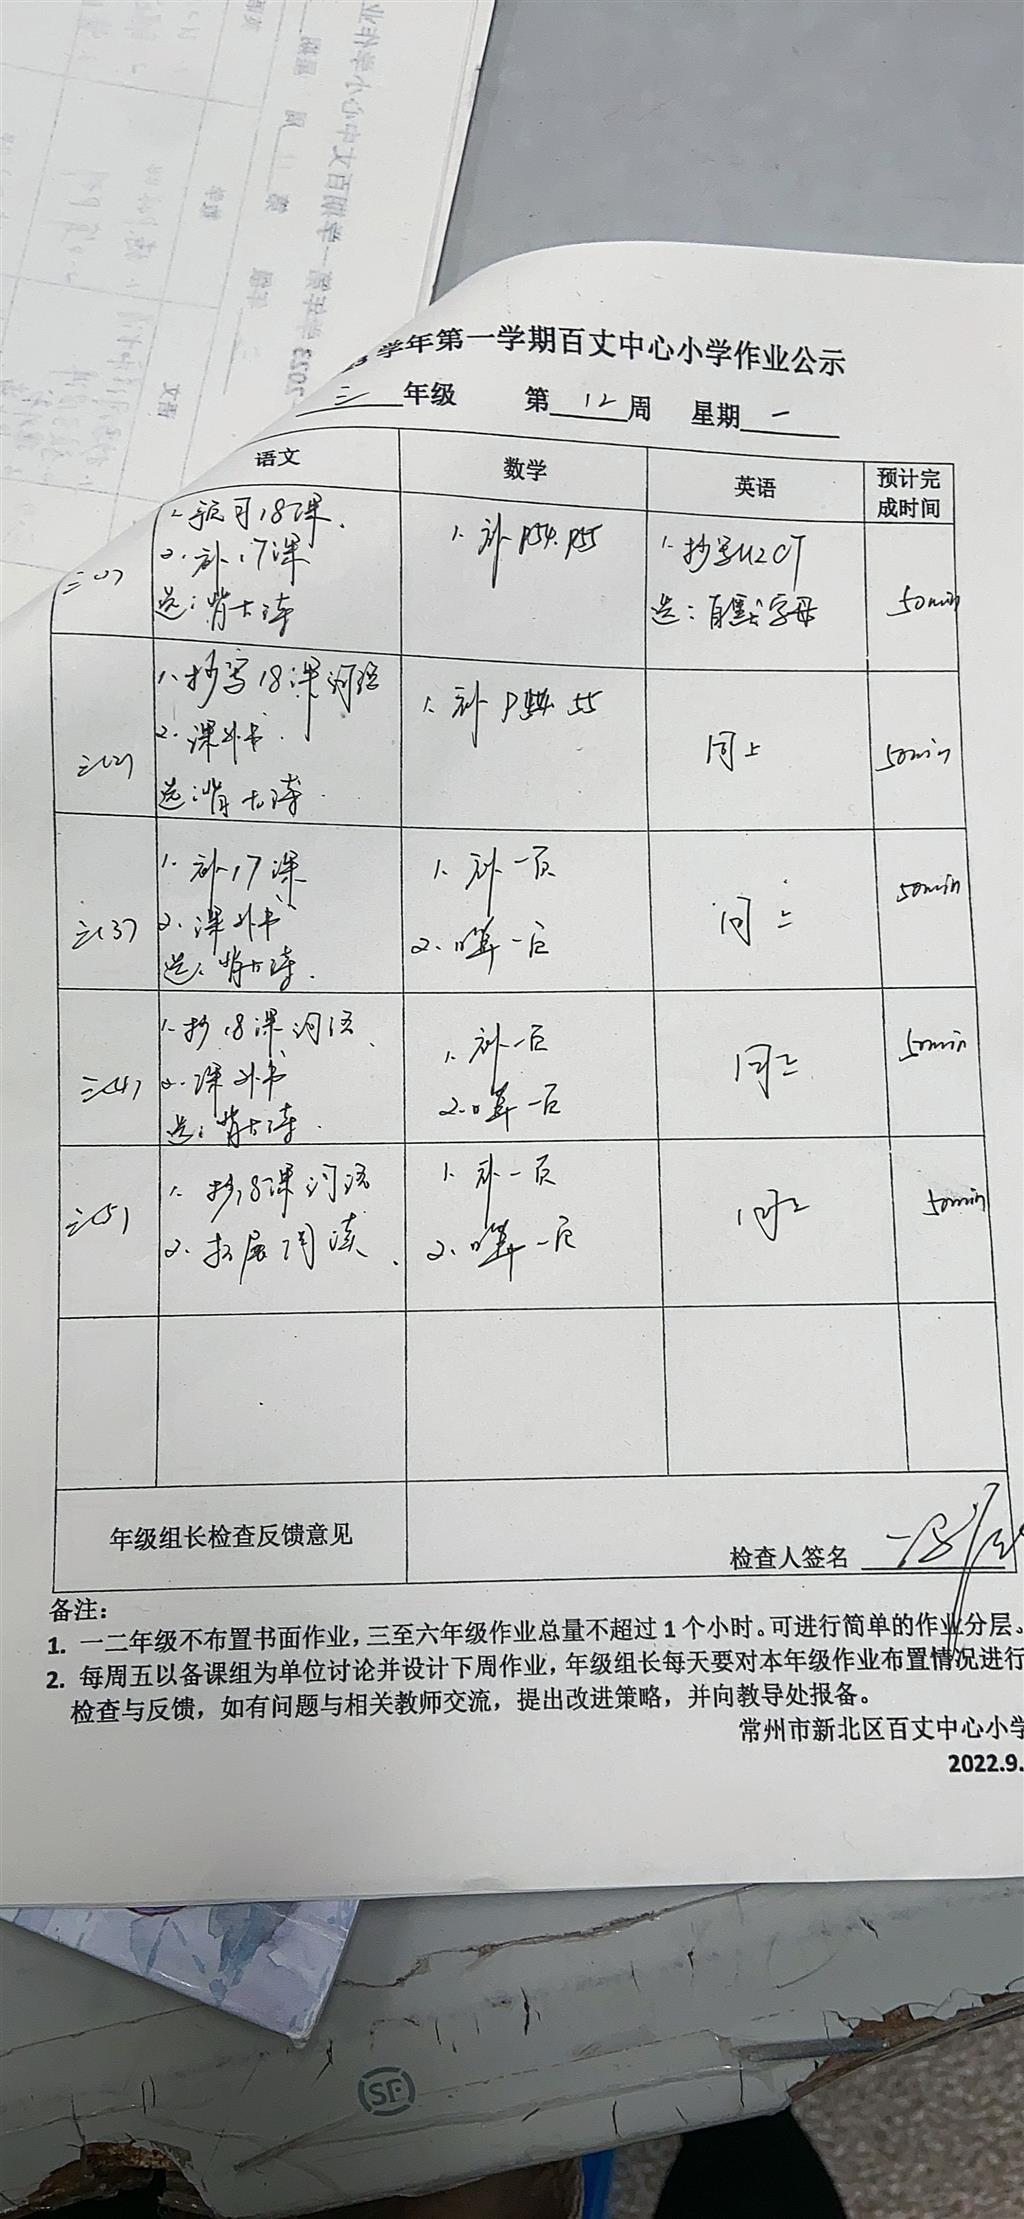 学年第一学期百丈中心小学作业公示
三 年级 第 12 周 星期 一
语文 数学 英语 预计完成时间
三(1) 1. 预习18课. 2. 补17课 选:背古诗 1. 补P54. P55 1. 抄写U2 CT 选:自默字母 50min
三(2) 1. 抄写18课词语 2. 课外书. 选:背古诗. 1. 补P54. 55 同上 50min
三(3) 1. 补17课 2. 课外书 选:背古诗. 1. 补一页 2. 口算一页 同上 50min
三(4) 1. 抄18课词语. 2. 课外书 选:背古诗. 1. 补一页 2. 口算一页 同上 50min
三(5) 1. 抄18课词语 2. 拓展阅读. 1. 补一页 2. 口算一页 同上 50min
年级组长检查反馈意见 检查人签名
备注:
1. 一二年级不布置书面作业,三至六年级作业总量不超过1个小时。可进行简单的作业分层。
2. 每周五以备课组为单位讨论并设计下周作业,年级组长每天要对本年级作业布置情况进行
检查与反馈,如有问题与相关教师交流,提出改进策略,并向教导处报备。
常州市新北区百丈中心小学
2022.9.
SF